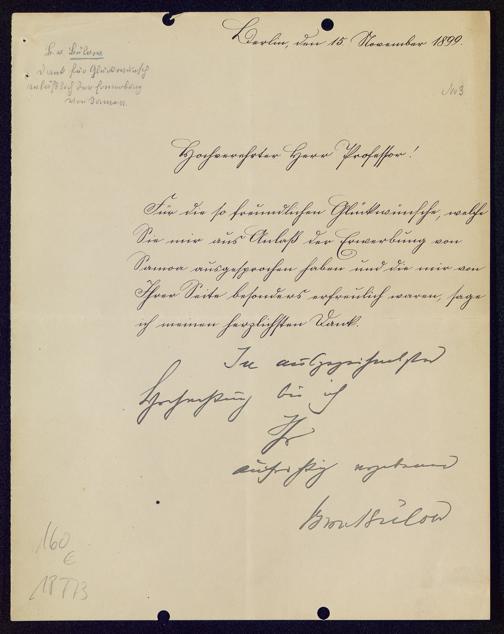 Berlin, den 15. November 1899.
B. v. Bülow
Dank für Glückwunsch
anläßlich der Erwerbung
von Samoa.
Hochverehrter Herr Professor!
Für die so freundlichen Glückwünsche, welche
Sie mir aus Anlaß der Erwerbung von
Samoa ausgesprochen haben und die mir von
Ihrer Seite besonders erfreulich waren, sage
ich meinen herzlichsten Dank.
In ausgezeichnetster
Hochachtung bin ich
Ihr
aufrichtig ergebener
Bülow
160
€